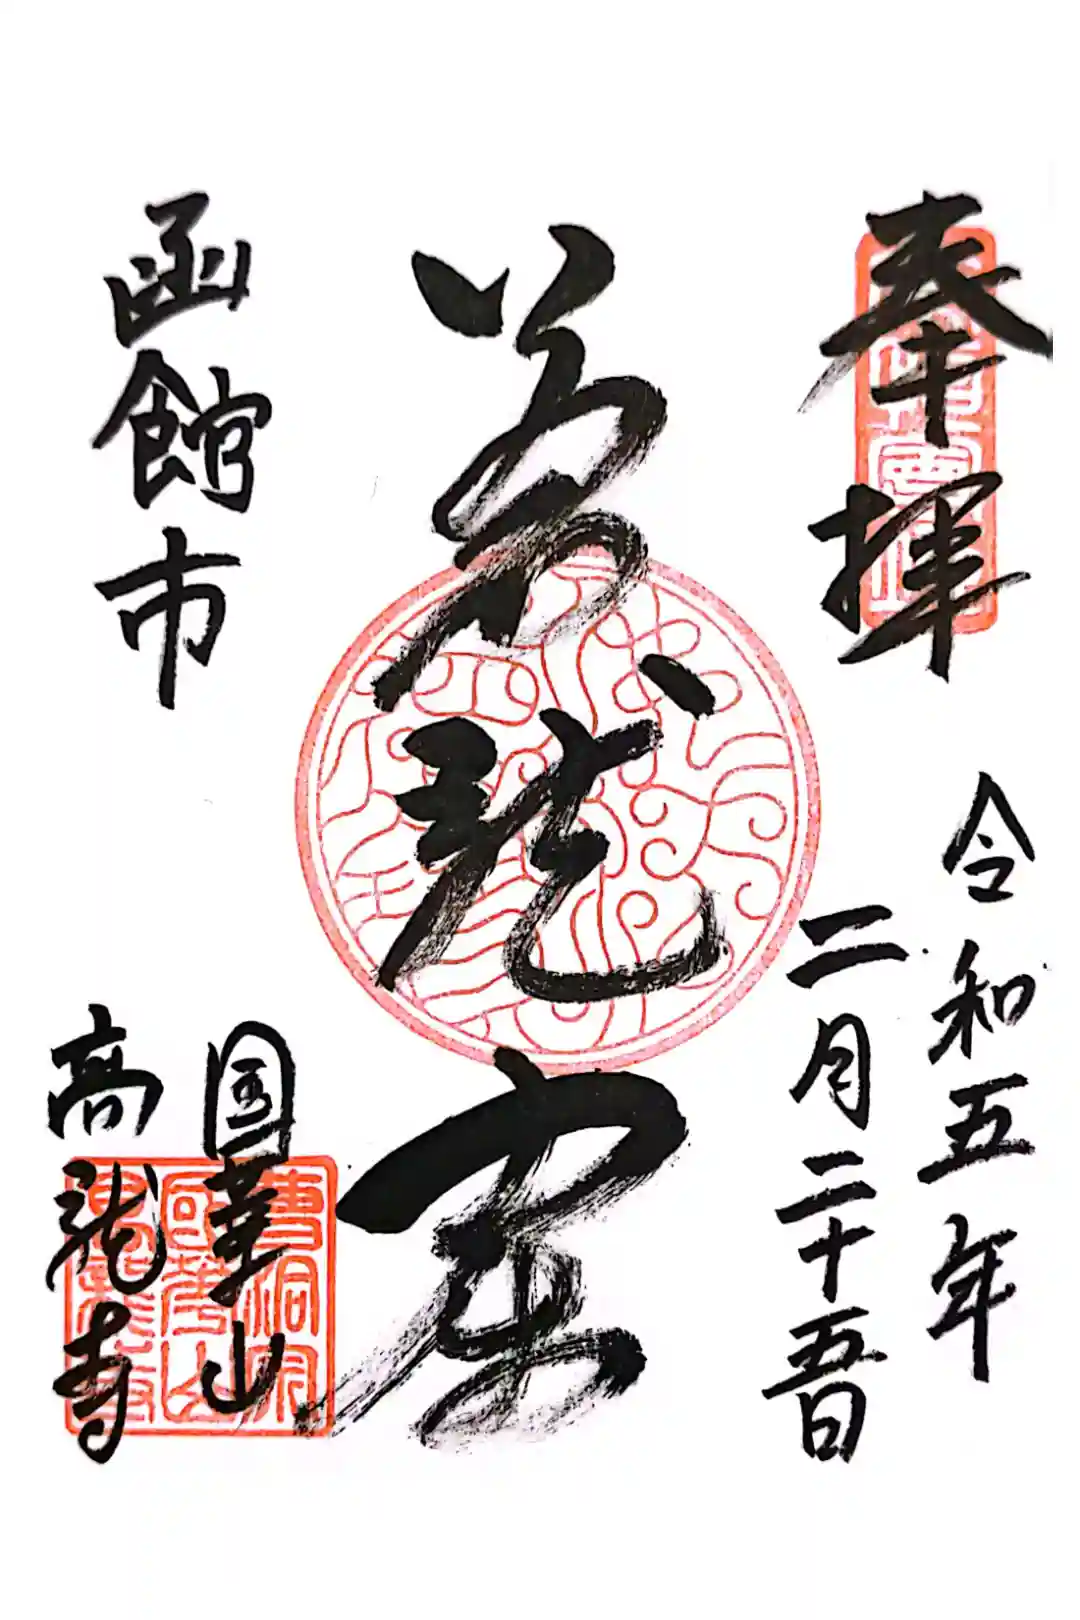 奉拝
令和五年
二月二十五日
龍
函館市
国華山
高龍寺
曹洞宗
國華山
高龍寺